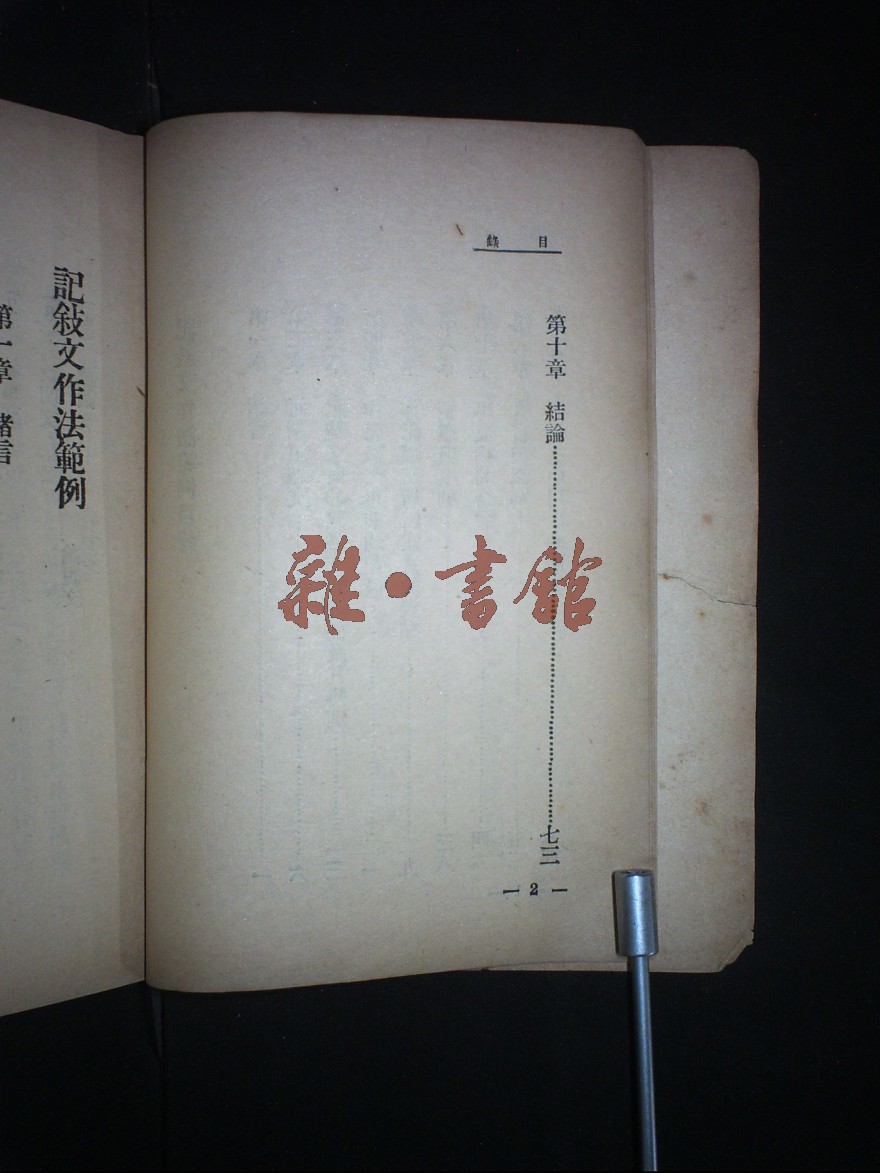 目錄
第十章 結論……七三
— 2 —
記敍文作法範例
第一章 緒言
雜·書館